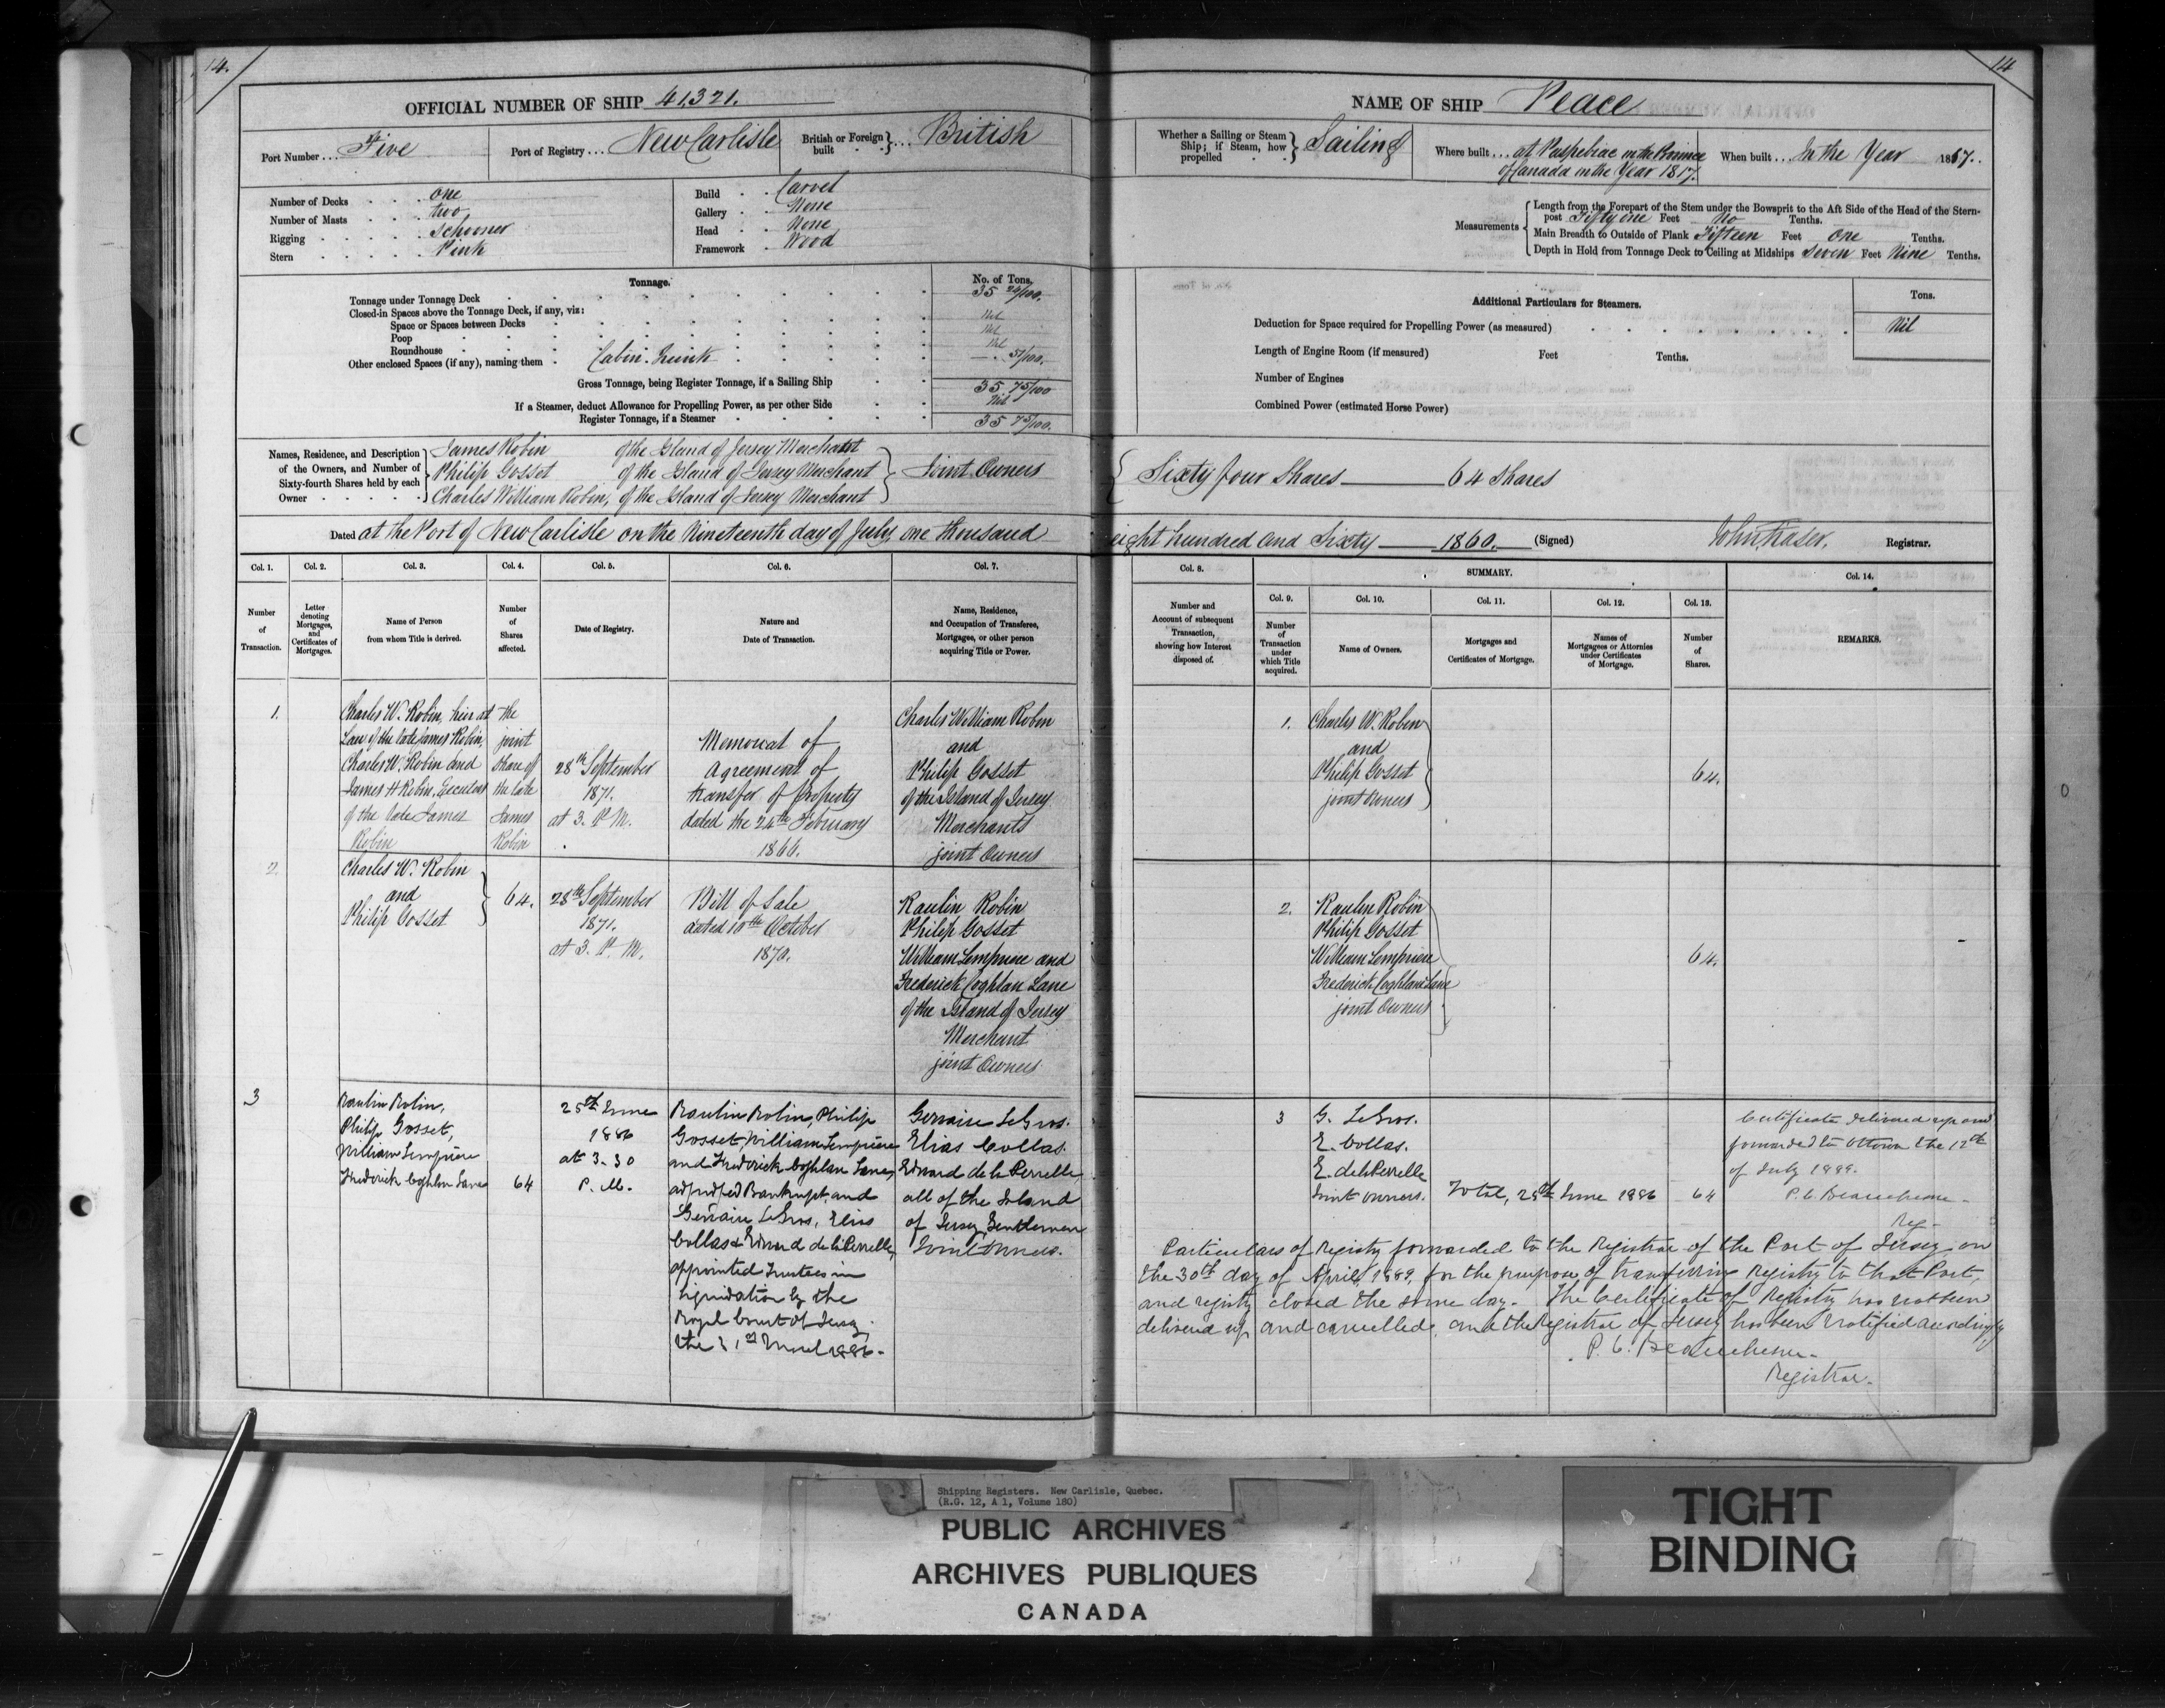 14.
OFFICIAL NUMBER OF SHIP 41321.
Port Number... Five
Port of Registry... New Carlisle
British or Foreign built } ... British
Number of Decks one
Number of Masts two
Rigging Schooner
Stern Pink
Build Carvel
Gallery None
Head None
Framework Wood
Tonnage.
No. of Tons.
Tonnage under Tonnage Deck 35 24/100.
Closed-in Spaces above the Tonnage Deck, if any, viz:
Space or Spaces between Decks Nil
Poop Nil
Roundhouse Nil
Other enclosed Spaces (if any), naming them Cabin Trunk —. 51/100.
Gross Tonnage, being Register Tonnage, if a Sailing Ship 35 75/100
If a Steamer, deduct Allowance for Propelling Power, as per other Side Nil
Register Tonnage, if a Steamer 35 75/100.
Names, Residence, and Description of the Owners, and Number of Sixty-fourth Shares held by each Owner
James Robin of the Island of Jersey Merchant
Philip Gosset of the Island of Jersey Merchant } Joint Owners
Charles William Robin, of the Island of Jersey Merchant
Dated at the Port of New Carlisle on the Nineteenth day of July, one thousand
Col. 1. Col. 2. Col. 3. Col. 4. Col. 5. Col. 6. Col. 7.
Number of Transaction.
Letter denoting Mortgages, and Certificates of Mortgages.
Name of Person from whom Title is derived.
Number of Shares affected.
Date of Registry.
Nature and Date of Transaction.
Name, Residence, and Occupation of Transferee, Mortgagee, or other person acquiring Title or Power.
1.
Charles W. Robin, heir at
Law of the late James Robin,
Charles W. Robin and
James H Robin, Executors
of the late James
Robin
the
joint
share of
the late
James
Robin
28th September
1871.
at 3. P. M.
Memorial of
Agreement of
transfer of property
dated the 24th February
1866.
Charles William Robin
and
Philip Gosset
of the Island of Jersey
Merchants
joint Owners
2.
Charles W. Robin
and
Philip Gosset
64.
28th September
1871.
at 3. P. M.
Bill of Sale
dated 10th October
1870.
Raulin Robin
Philip Gosset
William Lempriere and
Frederick Coghlan Lane
of the Island of Jersey
Merchant
joint Owners
3
Raulin Robin,
Philip Gosset,
William Lempriere
Frederick Coghlan Lane
64
25th June
1886
at 3.30
P. M.
Raulin Robin, Philip
Gosset, William Lempriere
and Frederick Coghlan Lane,
adjudged Bankrupt and
Gervaise LeGros, Elias
Collas & Edward de la Perrelle,
appointed Trustees in
liquidation by the
Royal Court of Jersey
the 1886.
Gervaise LeGros.
Elias Collas.
Edward de la Perrelle
all of the Island
of Jersey Gentlemen
Joint Owners.
14
NAME OF SHIP Peace
Whether a Sailing or Steam Ship; if Steam, how propelled } Sailing
Where built... at Paspebiac in the Province
of Canada in the Year 1817.
When built... In the Year 1817.
Measurements
Length from the Forepart of the Stem under the Bowsprit to the Aft Side of the Head of the Stern-
post Fifty one Feet No Tenths.
Main Breadth to Outside of Plank Fifteen Feet one Tenths.
Depth in Hold from Tonnage Deck to Ceiling at Midships Seven Feet Nine Tenths.
Additional Particulars for Steamers.
Tons.
Deduction for Space required for Propelling Power (as measured) Nil
Length of Engine Room (if measured) Feet Tenths.
Number of Engines
Combined Power (estimated Horse Power)
Sixty four Shares 64 Shares
eight hundred and Sixty 1860. (Signed) John Fraser. Registrar.
Col. 8. SUMMARY. Col. 14.
Col. 9. Col. 10. Col. 11. Col. 12. Col. 13.
Number and Account of subsequent Transaction, showing how Interest disposed of.
Number of Transaction under which Title acquired.
Name of Owners.
Mortgages and Certificates of Mortgage.
Names of Mortgagees or Attornies under Certificates of Mortgage.
Number of Shares.
REMARKS.
1.
Charles W. Robin
and
Philip Gosset
joint Owners
64.
2.
Raulin Robin
Philip Gosset
William Lempriere
Frederick Coghlan Lane
joint Owners
64.
3
G. LeGros.
E. Collas.
E. de la Perrelle
Joint Owners. Total, 25th June 1886 64
Certificate delivered up and
forwarded to Ottawa the 12th
of July 1889.
P. C. Beauchesne
Reg-
Particulars of Registry forwarded to the Registrar of the Port of Jersey on
the 30th day of April, 1889, for the purpose of transferring Registry to that Port,
and registry closed the same day. The Certificate of Registry has not been
delivered up and cancelled, and the Registrar of Jersey has been notified accordingly
P. C. Beauchesne-
Registrar.
Shipping Registers. New Carlisle, Quebec.
(R.G. 12, A 1, Volume 180)
PUBLIC ARCHIVES
ARCHIVES PUBLIQUES
CANADA
TIGHT
BINDING